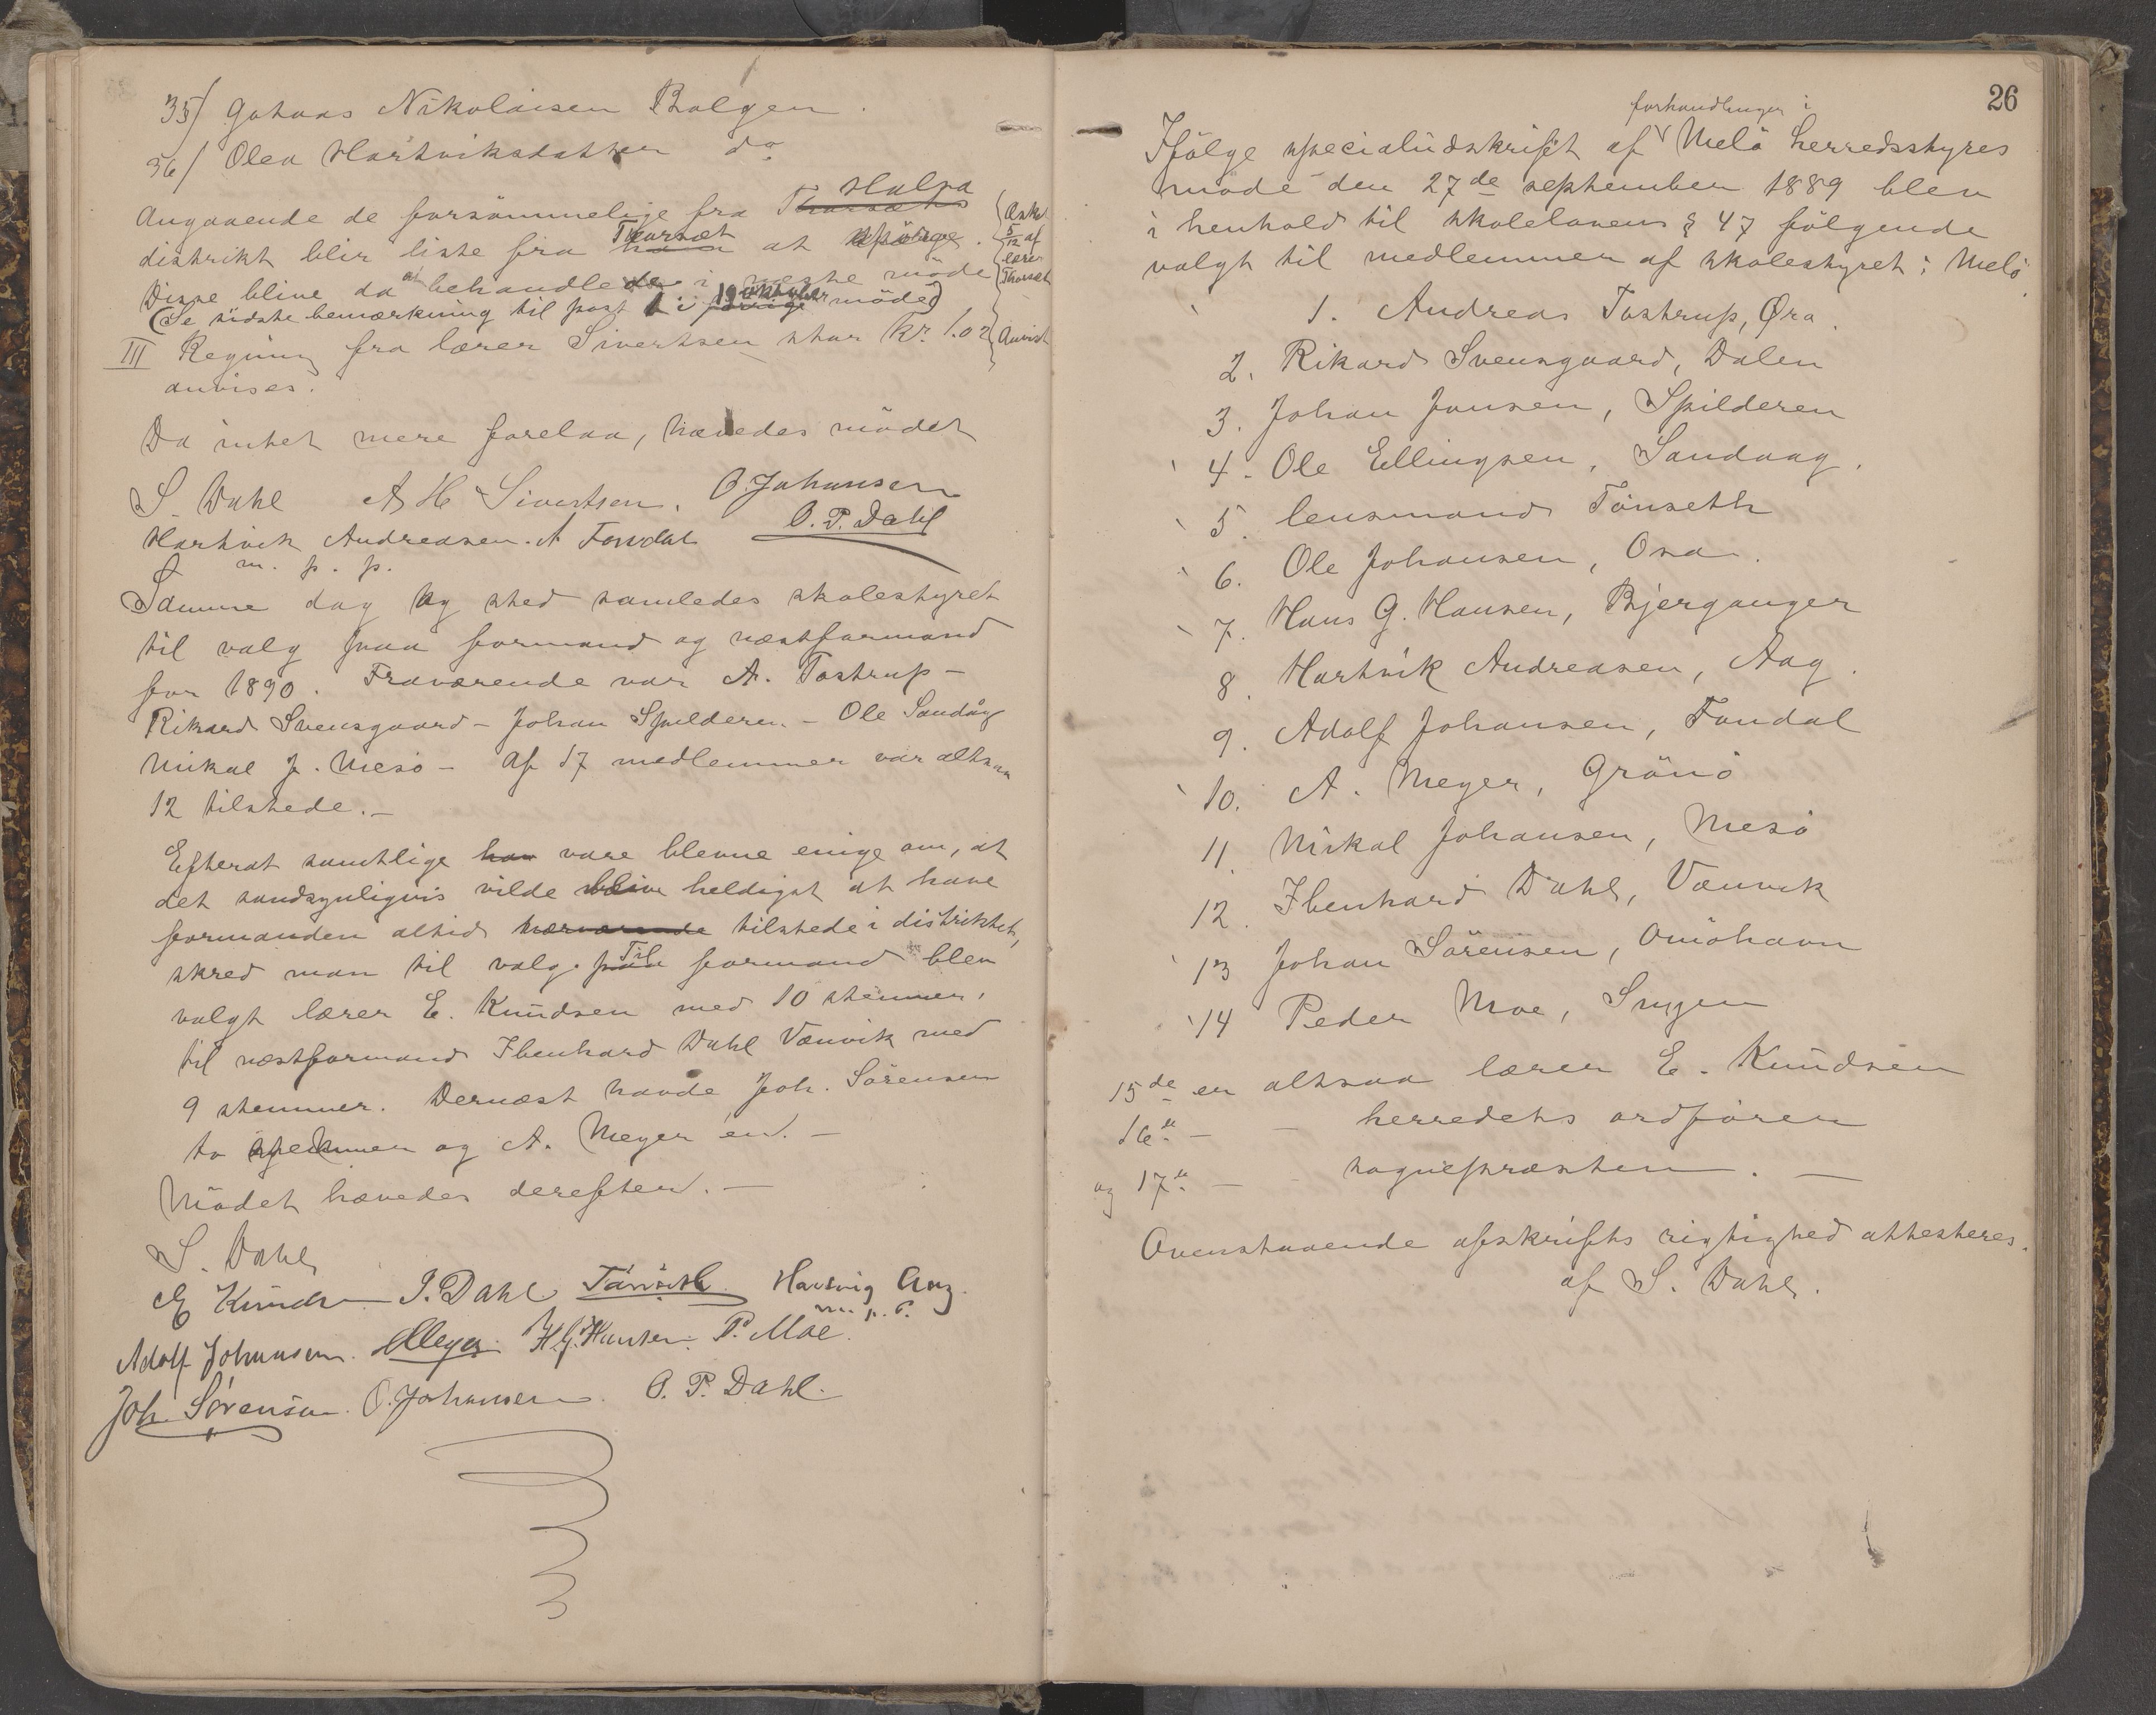 35/ Johans Nikolaisen Bolgen.
36/ Olea Hartviksdatter do
Angaaende de forsømmelige fra Thorsæts Halsa
distrikt blir liste fra ham Thorsæt at afvige.
Disse blive da at behandlede i næste møde
(Se sidste bemærkning til post 1 i forrige 19 oktober møde)
{Æske
5/12 af
lærer
Thorsæt
III Regning fra lærer Sivertsen stor kr. 1.02 {Anvist
anvises.
Da intet mere forelaa, hævedes mødet
S. Dahl A H Sivertsen. O. Johansen
Hartvik Andreasen. A Fondal O. P. Dahl
m. p. p.
Samme dag og sted samledes skolestyret
til valg paa formand og næstformand
for 1890. Fraværende var A. Tostrup –
Rikard Svensgaard – Johan Spilderen – Ole Sandåg
Mikal J. Mesø – Af 17 medlemmer var altsaa
12 tilstede. –
Efterat samtlige har vare blevne enige om, at
det sandsynligvis vilde blive heldigst at have
formanden altid nærværende tilstede i distriktet,
skred man til valg. paa Til formand blev
valgt lærer E. Knudsen med 10 stemmer,
til næstformand Ibenhard Dahl Vænvik med
9 stemmer. Dernæst havde Joh. Sørensen
to stemmer og A. Meyer en. –
Mødet hævedes derefter. –
S. Dahl
E Knudsen I. Dahl Tønseth Hartvig Aag.
m. p. p.
Adolf Johansen. AMeyer. H. G. Hansen. P. Moe.
Joh. Sørensen. O. Johansen. O. P. Dahl.
26
forhandlinger i
Ifølge specialudskrift af Melø herredsstyres
møde den 27de september 1889 blev
i henhold til skolelovens § 47 følgende
valgt til medlemmer af skolestyret i Melø
1. Andreas Tostrup, Øra.
2. Rikard Svensgaard, Dalen
3. Johan Jansen, Spilderen
4. Ole Ellingsen, Sandaag.
5. lensmand Tønseth
6. Ole Johansen, Osa.
7. Hans G. Hansen, Bjerganger
8. Hartvik Andreasen, Aag.
9. Adolf Johansen, Fondal
10. A. Meyer, Grønø
11. Mikal Johansen, Mesø
12. Ibenhard Dahl, Vænvik
13 Johan Sørensen, Omøhavn
14 Peder Moe,
15de er altsaa lærer E. Knudsen
16de – – herredets ordfører
og 17de – – sognepræsten. –
Ovenstaaende afskrifts rigtighed attesteres.
af S. Dahl.